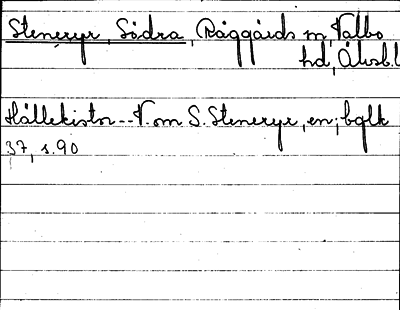 Steneryr, Södra, Råggärds sn, Valbo
hd, Älvsb.l
Hällekistor -- V. om S. Steneryr, en; bglk
37, s. 90